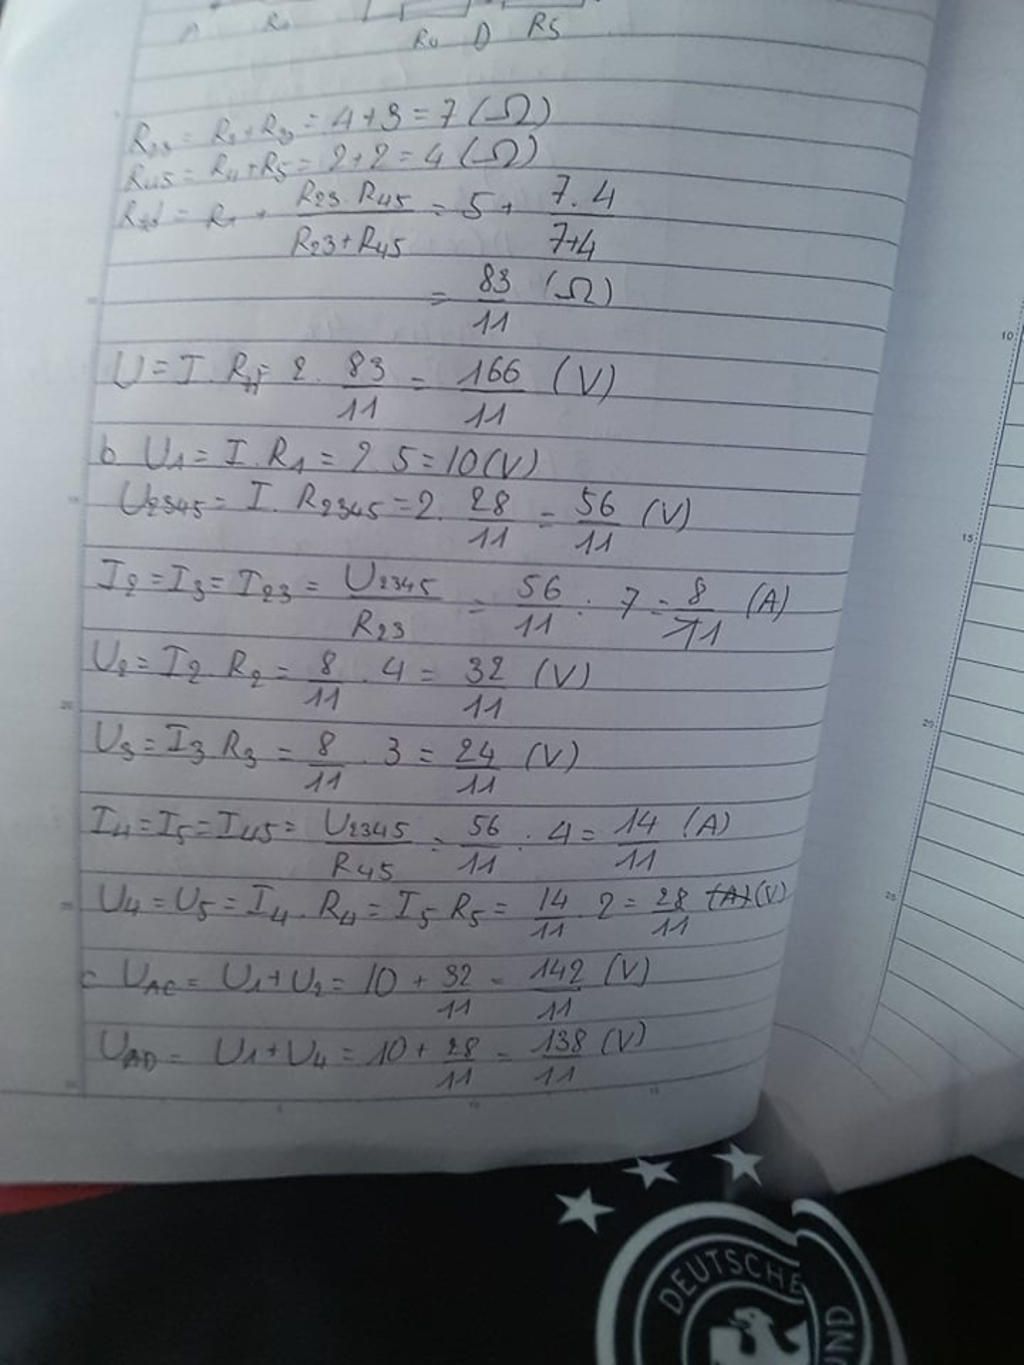 R₄ D R5
R₂₃ = R₂ + R₃ = 4 + 3 = 7 (Ω)
R₄₅ = R₄ + R₅ = 2 + 2 = 4 (Ω)
Rtđ = R₁ + R₂₃.R₄₅ / R₂₃+R₄₅ = 5 + 7.4 / 7+4
= 83/11 (Ω)
U = I.Rtđ = 2. 83/11 = 166/11 (V)
b. U₁ = I.R₁ = 2.5 = 10 (V)
U₂₃₄₅ = I.R₂₃₄₅ = 2. 28/11 = 56/11 (V)
I₂ = I₃ = I₂₃ = U₂₃₄₅/R₂₃ = 56/11 : 7 = 8/11 (A)
U₂ = I₂.R₂ = 8/11 . 4 = 32/11 (V)
U₃ = I₃.R₃ = 8/11 . 3 = 24/11 (V)
I₄ = I₅ = I₄₅ = U₂₃₄₅/R₄₅ = 56/11 : 4 = 14/11 (A)
U₄ = U₅ = I₄.R₄ = I₅.R₅ = 14/11 . 2 = 28/11 (V)
c. U_AC = U₁ + U₂ = 10 + 32/11 = 142/11 (V)
U_AD = U₁ + U₄ = 10 + 28/11 = 138/11 (V)
10
15
20
25
DEUTSCHE
UND